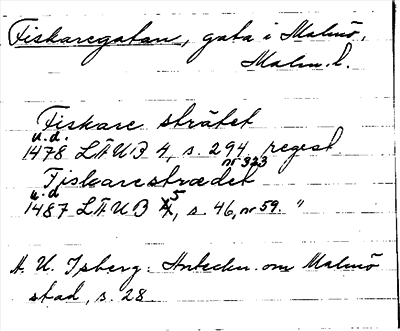 Fiskaregatan, gata i Malmö,
Malm. l.
Fiskare strätet
u.d.
1478 LÄUB 4, s. 294, nr 323 regest
Fiskarestrædet
u.d.
1487 LÄUB 5, s. 46, nr 59. "
A. U. Isberg: Anteckn. om Malmö
stad, s. 28